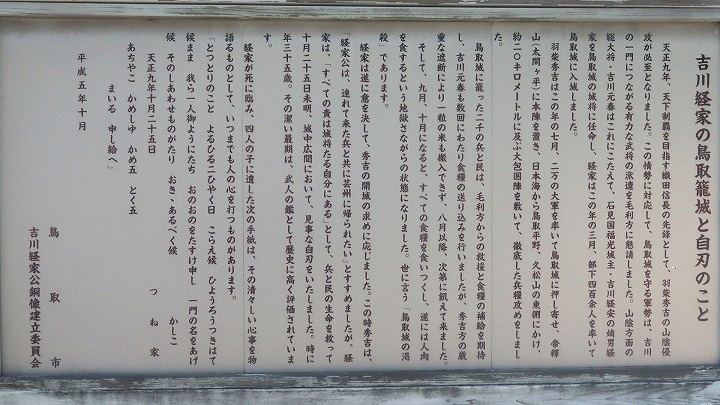 吉川経家の鳥取籠城と自刃のこと
天正九年、天下制覇を目指す織田信長の先鋒として、羽柴秀吉の山陰侵
攻が必至となりました。この情勢に対応して、鳥取城を守る軍勢は、吉川
の一門につながる有力な武将の派遣を毛利方に懇請しました。山陰方面の
総大将・吉川元春はこれにこたえて、石見国福光城主・吉川経安の嫡男経
家を鳥取城の城将に任命し、経家はこの年の三月、部下四百余人を率いて
鳥取城に入城しました。
羽柴秀吉はこの年の七月、二万の大軍を率いて鳥取城に押し寄せ、帝釈
山(太閤ヶ平)に本陣を置き、日本海から鳥取平野、久松山の東側にかけ、
約二〇キロメートルに及ぶ大包囲陣を敷いて、徹底した兵糧攻めをしまし
た。
鳥取城に籠った二千の兵と民は、毛利方からの救援と食糧の補給を期待
し、吉川元春も数回にわたり食糧の送り込みを行いましたが、秀吉方の厳
重な遮断により一粒の米も搬入できず、八月以降、次第に飢えて来ました。
そして、九月、十月になると、すべての食糧を食いつくし、遂には人肉
を食するという地獄さながらの状態になりました。世に言う「鳥取城の渇
殺」であります。
経家は遂に意を決して、秀吉の開城の求めに応じました。この時秀吉は、
「経家公は、連れて来た兵と共に芸州に帰られたい」とすすめましたが、経
家は、「すべての責は城将たる自分にある」として、兵と民の生命を救って
十月二十五日未明、城中広間において、見事な自刃をいたしました。時に
年三十五歳。その潔い最期は、武人の鑑として歴史に高く評価されていま
す。
経家が死に臨み、四人の子に遺した次の手紙は、その清々しい心事を物
語るものとして、いつまでも人の心を打つものがあります。
「とつとりのこと　よるひる二ひやく日　こらえ候　ひようろうつきはて
候まま　我ら一人御ようにたち　おのおのをたすけ申し　一門の名をあげ
候　そのしあわせものがたり　おき、あるべく候　かしこ
天正九年十月二十五日　つね家
あちやこ　かめしゆ　かめ五　とく五
まいる　申し給へ」
平成五年十月
鳥取市
吉川経家公銅像建立委員会